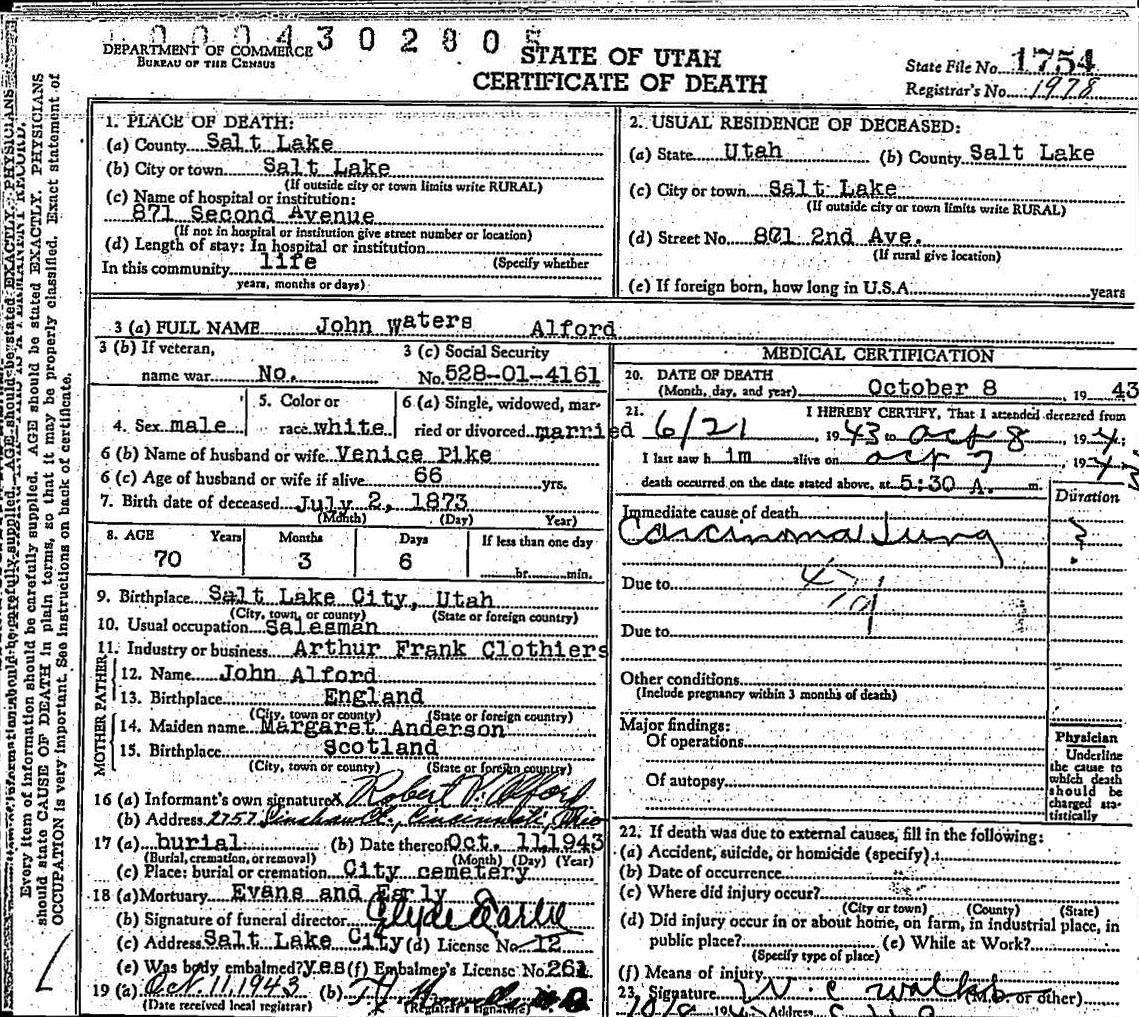 0004302805
DEPARTMENT OF COMMERCE
BUREAU OF THE CENSUS
STATE OF UTAH
CERTIFICATE OF DEATH
State File No. 1754
Registrar's No. 1978
Every item of information should be carefully supplied. AGE should be stated EXACTLY. PHYSICIANS
should state CAUSE OF DEATH in plain terms, so that it may be properly classified. Exact statement of
OCCUPATION is very important. See instructions on back of certificate.
1. PLACE OF DEATH:
(a) County Salt Lake
(b) City or town Salt Lake
(If outside city or town limits write RURAL)
(c) Name of hospital or institution:
871 Second Avenue
(If not in hospital or institution give street number or location)
(d) Length of stay: In hospital or institution
In this community life (Specify whether
years, months or days)
2. USUAL RESIDENCE OF DECEASED:
(a) State Utah (b) County Salt Lake
(c) City or town Salt Lake
(If outside city or town limits write RURAL)
(d) Street No. 871 2nd Ave.
(If rural give location)
(e) If foreign born, how long in U.S.A. years
3 (a) FULL NAME John Waters Alford
3 (b) If veteran, name war No.
3 (c) Social Security No. 528-01-4161
4. Sex male
5. Color or race white
6 (a) Single, widowed, married or divorced married
6 (b) Name of husband or wife Venice Pike
6 (c) Age of husband or wife if alive 66 yrs.
7. Birth date of deceased July 2, 1873
(Month) (Day) Year)
8. AGE Years Months Days If less than one day
70 3 6 hr. min.
9. Birthplace Salt Lake City, Utah
(City, town, or county) (State or foreign country)
10. Usual occupation Salesman
11. Industry or business Arthur Frank Clothiers
FATHER
12. Name John Alford
13. Birthplace England
(City, town or county) (State or foreign country)
MOTHER
14. Maiden name Margaret Anderson
15. Birthplace Scotland
(City, town or county) (State or foreign country)
16 (a) Informant's own signature Robert Alford
(b) Address 2757 Cincinnati, Ohio
17 (a) burial (b) Date thereof Oct. 11, 1943
(Burial, cremation, or removal) (Month) (Day) (Year)
(c) Place: burial or cremation City cemetery
18 (a) Mortuary Evans and Early
(b) Signature of funeral director Clyde Earlie
(c) Address Salt Lake City (d) License No. 12
(e) Was body embalmed? yes (f) Embalmer's License No. 261
19 (a) Oct. 11, 1943 (b)
(Date received local registrar) (Registrar's signature)
MEDICAL CERTIFICATION
20. DATE OF DEATH
(Month, day, and year) October 8 19 43
21. I HEREBY CERTIFY, That I attended deceased from
6/21 1943 to Oct 8 194
I last saw him alive on Oct 7 194
death occurred on the date stated above, at 5:30 A. m.
Duration
Immediate cause of death
Carcinoma Lung ?
Due to 47
Due to
Other conditions
(Include pregnancy within 3 months of death)
Major findings:
Of operations
Of autopsy
Physician
Underline
the cause to
which death
should be
charged sta-
tistically
22. If death was due to external causes, fill in the following:
(a) Accident, suicide, or homicide (specify)
(b) Date of occurrence
(c) Where did injury occur?
(City or town) (County) (State)
(d) Did injury occur in or about home, on farm, in industrial place, in
public place? (e) While at Work?
(Specify type of place)
(f) Means of injury
23. Signature W. C. (M.D. or other)
194 Address